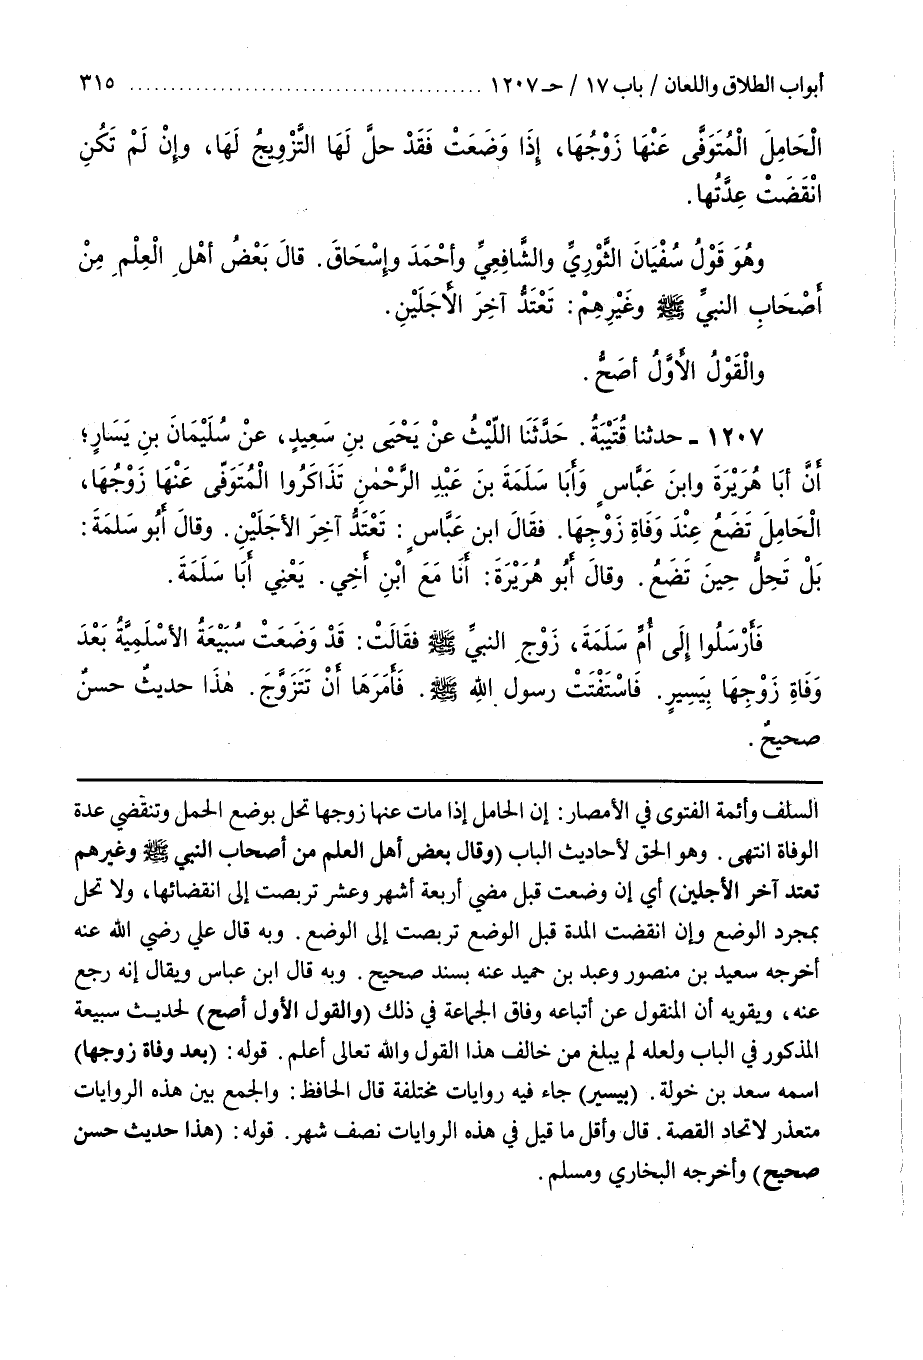 أبواب الطلاق واللعان / باب ١٧ / حـ ١٢٠٧ ........................................ ٣١٥
الْحَامِلَ الْمُتَوَفَّى عَنْهَا زَوْجُهَا، إِذَا وَضَعَتْ فَقَدْ حلَّ لَهَا التَّزْوِيجُ لَهَا، وإِنْ لَمْ تَكُنِ
انْقَضَتْ عِدَّتُها.
وهُوَ قَوْلُ سُفْيَانَ الثَّوْرِيِّ والشَّافِعِيِّ وأحْمَدَ وإِسْحَاقَ. قالَ بَعْضُ أهْلِ الْعِلْمِ مِنْ
أَصْحَابِ النبيِّ ﷺ وغَيْرِهِمْ: تَعْتَدُّ آخِرَ الأَجَلَيْنِ.
والْقَوْلُ الأَوَّلُ أصَحُّ.
١٢٠٧ - حدثنا قُتَيْبَةُ. حَدَّثَنَا اللَّيْثُ عنْ يَحْيَى بنِ سَعِيدٍ، عنْ سُلَيْمَانَ بنِ يَسَارٍ؛
أَنَّ أبَا هُرَيْرَةَ وابنَ عَبَّاسٍ وَأَبَا سَلَمَةَ بنَ عَبْدِ الرَّحْمٰنِ تَذَاكَرُوا الْمُتَوَفّى عَنْهَا زَوْجُهَا،
الْحَامِلَ تَضَعُ عِنْدَ وَفَاةِ زَوْجِهَا. فقَالَ ابن عَبَّاسٍ: تَعْتَدُّ آخِرَ الأجَلَيْنِ. وقالَ أَبُو سَلمَةَ:
بَلْ تَحِلُّ حِينَ تَضَعُ. وقالَ أَبُو هُرَيْرَةَ: أَنَا مَعَ ابْنِ أَخِي. يَعْنِي أَبَا سَلَمَةَ.
فَأَرْسَلُوا إِلَى أُمِّ سَلَمَةَ، زَوْجِ النبيِّ ﷺ فقَالَتْ: قَدْ وَضَعَتْ سُبَيْعَةُ الأسْلَمِيَّةُ بَعْدَ
وَفَاةِ زَوْجِهَا بِيَسِيرٍ. فَاسْتَفْتَتْ رسول اللهِ ﷺ. فَأَمَرَهَا أَنْ تَتَزَوَّجَ. هٰذَا حديثٌ حسنٌ
صحيحٌ.
السلف وأئمة الفتوى في الأمصار: إن الحامل إذا مات عنها زوجها تحل بوضع الحمل وتنقضي عدة
الوفاة انتهى. وهو الحق لأحاديث الباب (وقال بعض أهل العلم من أصحاب النبي ﷺ وغيرهم
تعتد آخر الأجلين) أي إن وضعت قبل مضي أربعة أشهر وعشر تربصت إلى انقضائها، ولا تحل
بمجرد الوضع وإن انقضت المدة قبل الوضع تربصت إلى الوضع. وبه قال علي رضي الله عنه
أخرجه سعيد بن منصور وعبد بن حميد عنه بسند صحيح. وبه قال ابن عباس ويقال إنه رجع
عنه، ويقويه أن المنقول عن أتباعه وفاق الجماعة في ذلك (والقول الأول أصح) لحديث سبيعة
المذكور في الباب ولعله لم يبلغ من خالف هذا القول والله تعالى أعلم. قوله: (بعد وفاة زوجها)
اسمه سعد بن خولة. (بيسير) جاء فيه روايات مختلفة قال الحافظ: والجمع بين هذه الروايات
متعذر لاتحاد القصة. قال وأقل ما قيل في هذه الروايات نصف شهر. قوله: (هذا حديث حسن
صحيح) وأخرجه البخاري ومسلم.